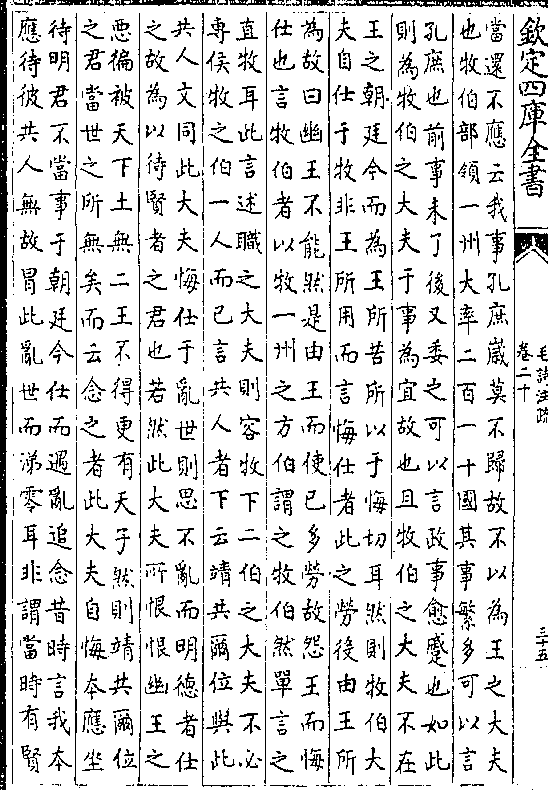 欽定四庫全書
毛詩注疏
卷二十
三十五
當還不應云我事孔庶歲莫不歸故不以為王之大夫
也牧伯部領一州大率二百一十國其事繁多可以言
孔庶也前事未了後又委之可以言政事愈蹙也如此
則為牧伯之大夫于事為宜故也且牧伯之大夫不在
王之朝廷今而為王所苦所以于悔切耳然則牧伯大
夫自仕于牧非王所用而言悔仕者此之勞役由王所
為故曰幽王不能然是由王而使已多勞故怨王而悔
仕也言牧伯者以牧一州之方伯謂之牧伯然單言之
直牧耳此言述職之大夫則容牧下二伯之大夫不必
專侯牧之伯一人而已言共人者下云靖共爾位與此
共人文同此大夫悔仕于亂世則思不亂而明德者仕
之故為以待賢者之君也若然此大夫所恨恨幽王之
惡徧被天下土無二王不得更有天子然則靖共爾位
之君當世之所無矣而云念之者此大夫自悔本應坐
待明君不當事于朝廷今仕而遇亂追念昔時言我本
應待彼共人無故冒此亂世而涕零耳非謂當時有賢